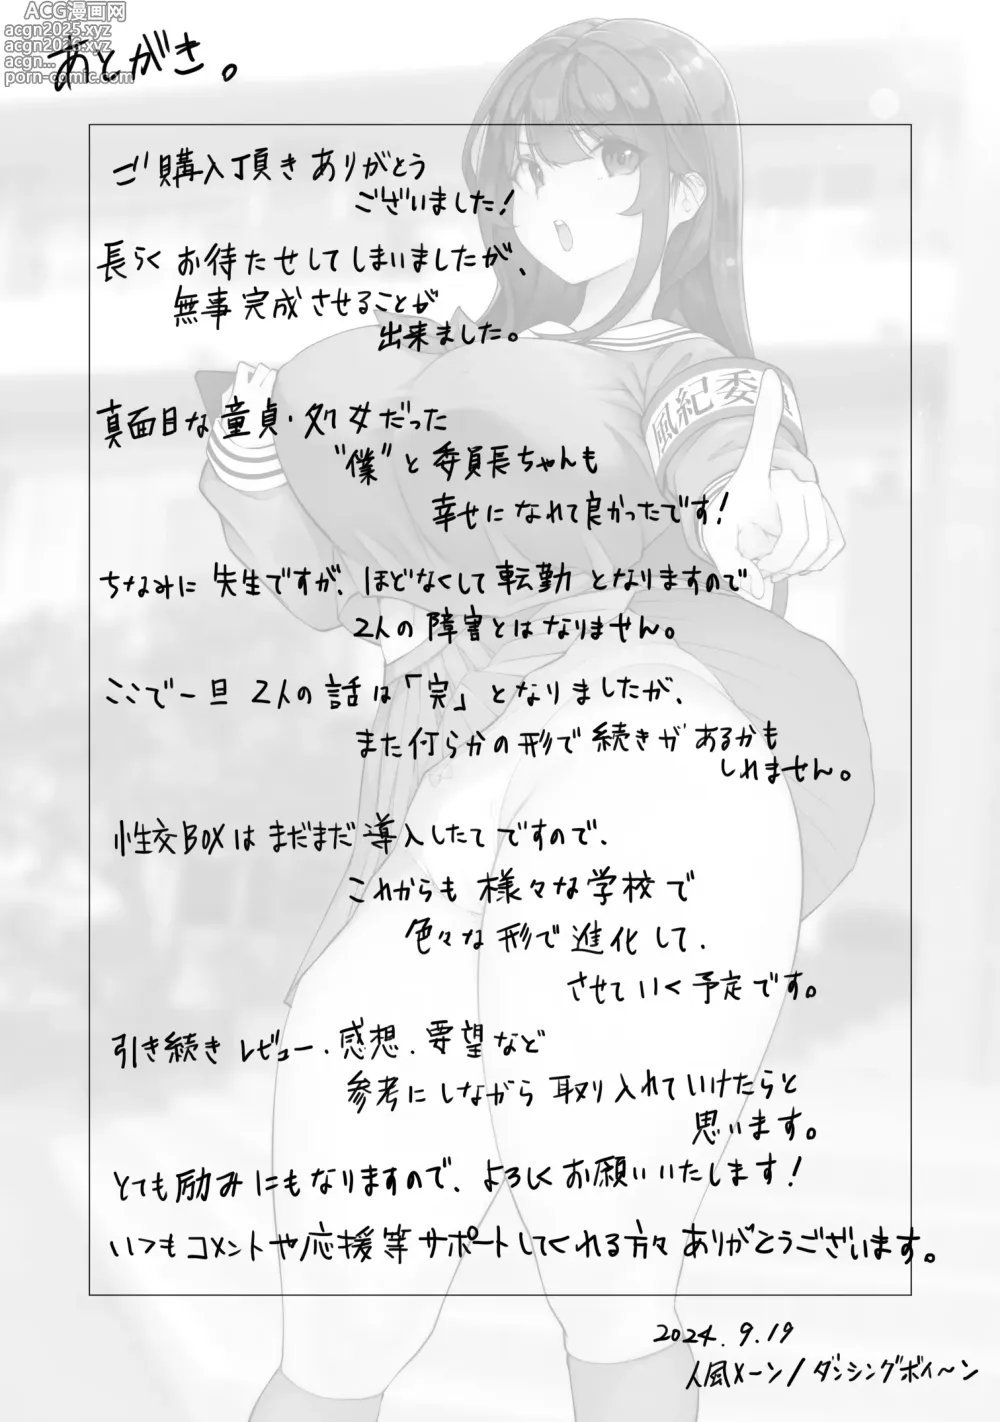 ACG漫画网
acgn2025.xyz
acgn2026.xyz
acgn...
porn-comic.com
あとがき。
ご購入頂きありがとう
ございました!
長らくお待たせしてしまいましたが、
無事完成させることが
出来ました。
風紀委
真面目な童貞・処女だった
"僕"と委員長ちゃんも
幸せになれて良かったです!
ちなみに先生ですが、ほどなくして転勤となりますので
2人の障害とはなりません。
ここで一旦2人の話は「完」となりましたが、
また何らかの形で続きがあるかも
しれません。
性交BOXはまだまだ導入したてですので、
これからも様々な学校で
色々な形で進化して、
させていく予定です。
引き続きレビュー、感想、要望など
参考にしながら取り入れていけたらと
思います。
とても励みにもなりますので、よろしくお願いいたします!
いつもコメントや応援等サポートしてくれる方々ありがとうございます。
2024.9.19
人風メーン/ダンシングボイ〜ン